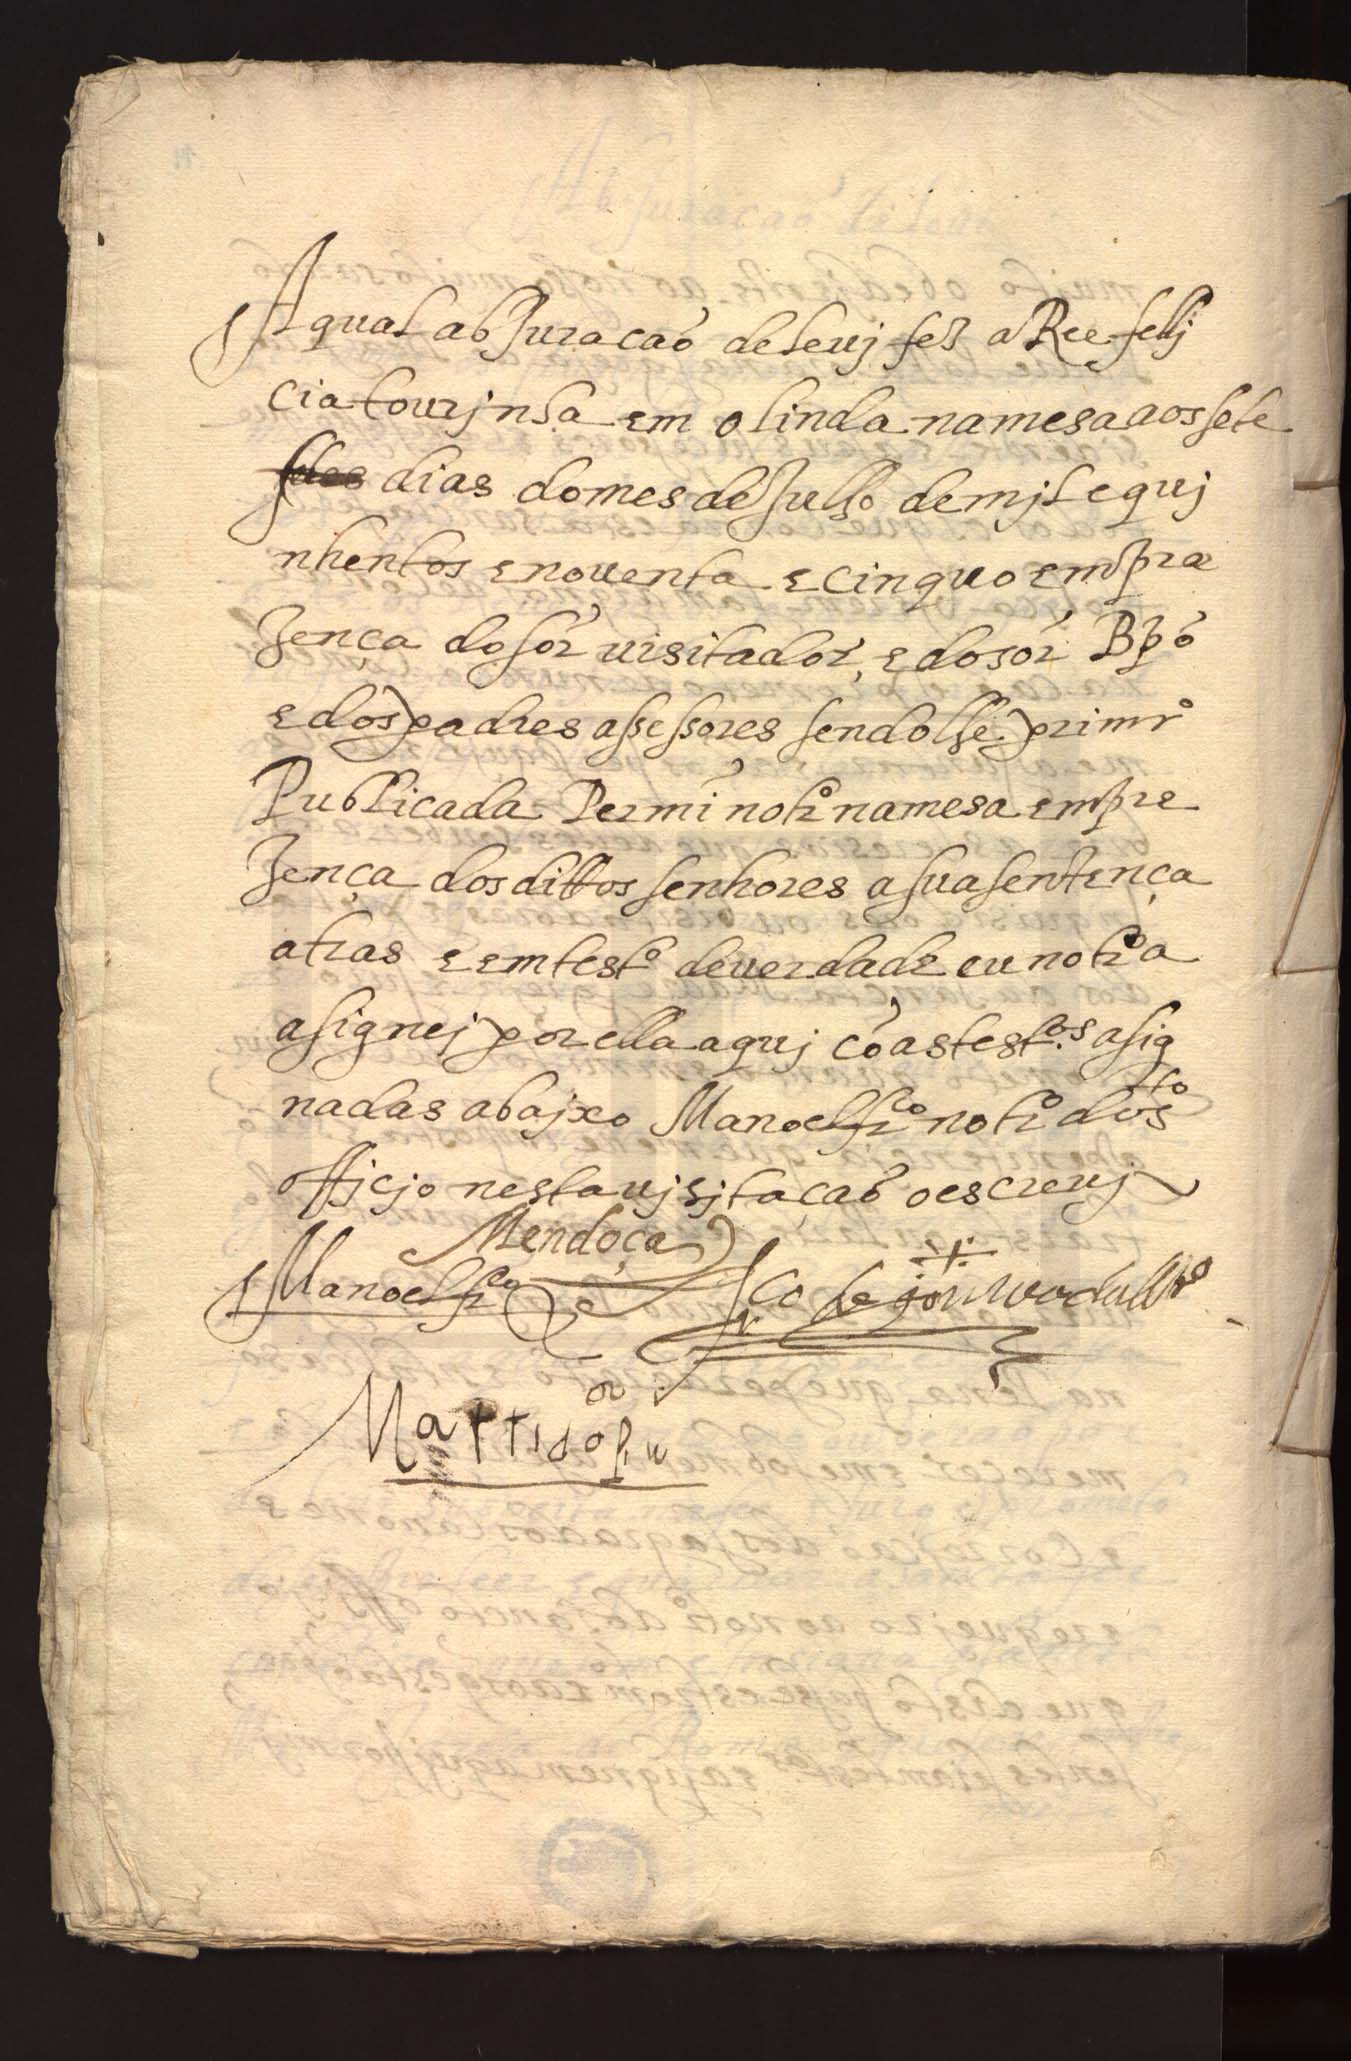 A qual abJuracaõ de leuj fez a Ree felj
cia tourjnha em olinda na mesa aos sete
dias do mes de Julho de mjl e quj
nhentos e nouenta e cinquo em pra
zença do sor visitador, e do sor Bpõ
e dos padres assessores sendolhe primro
Publicada Per mĩ notro na mesa em pre
zença dos dittos senhores a sua sentença
atras e em testo de verdade eu notro a
asignej por ella aquj cõ as testos asig
nadas abajxo Manoel frco notro do sto
officjo nesta vjsjtaçaõ o escreuj
Mendoça
Manoel frco
frco de
Martĩ do